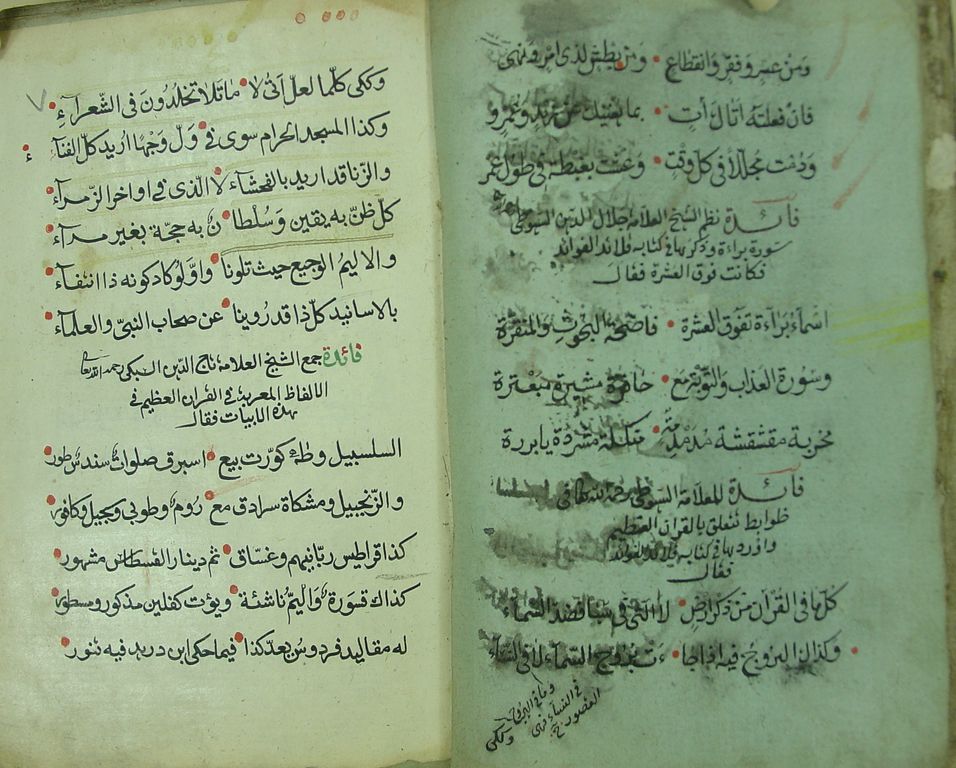 ومن عسر وفقر وانقطاع • ومن بطش لذى امر ونهى
فان فعلته اتاك رأت • بما يغنيك عن زيد وعمرو
ودمت مجللا فى كل وقت • وعشت بغبطة فى طول عمر
فائدة نظم الشيخ العلامة جلال الدين السيوطى
سورة براءة وذكرها فى كتابه قلائد الفوائد
فكانت فوق العشرة فقال
اسماء براءة تفوق العشرة • فاضحة البحوث والمنقرة
وسورة العذاب والتوبة مع • حافرة مشيرة مبعثرة
مخزية مقشقشة مدمدمة • منكلة مشردة يا بررة
فائدة للعلامة السيوطى رحمه الله تعالى فى
ضوابط تتعلق بالقران العظيم
واوردها فى كتاب قلائد الفوائد
فقال
كل ما فى القران من ذكر ارض • لا التى فى سبا فضد السماء
وكذا البروج فيه
وككى
وككى كلما لعل اتى لا • ما تلا تخلدون فى الشعراء
وكذا المسجد الحرام سوى فى • ول وجها اريد كل الفناء
والزنا قد اريد بالفحشاء • لا الذى فى اواخر الزهراء
كل ظن به يقين وسلطان • به حجة بغير مراء
والاليم الوجيع حيث تلونا • واو لو كاد كونه ذا انتفاء
بالاسانيد كل ذا قد روينا • عن صحاب النبى والعلماء
فائدة جمع الشيخ العلامة تاج الدين السبكى رحمه الله تعالى
الالفاظ المعربة فى القران العظيم فى
هذه الابيات فقال
السلسبيل وطه كورت بيع • اسبرق صلوات سندس طور
والزنجبيل ومشكاة سرادق مع • روم وطوبى وسجيل وكافور
كذا قراطيس ربانيهم وغساق • ثم دينار القسطاس مشهور
كذاك قسورة واليم ناشئة • ويؤت كفلين مذكور ومسطور
له مقاليد فردوس بعد كذا • فيما حكى ابن دريد فيه تنور